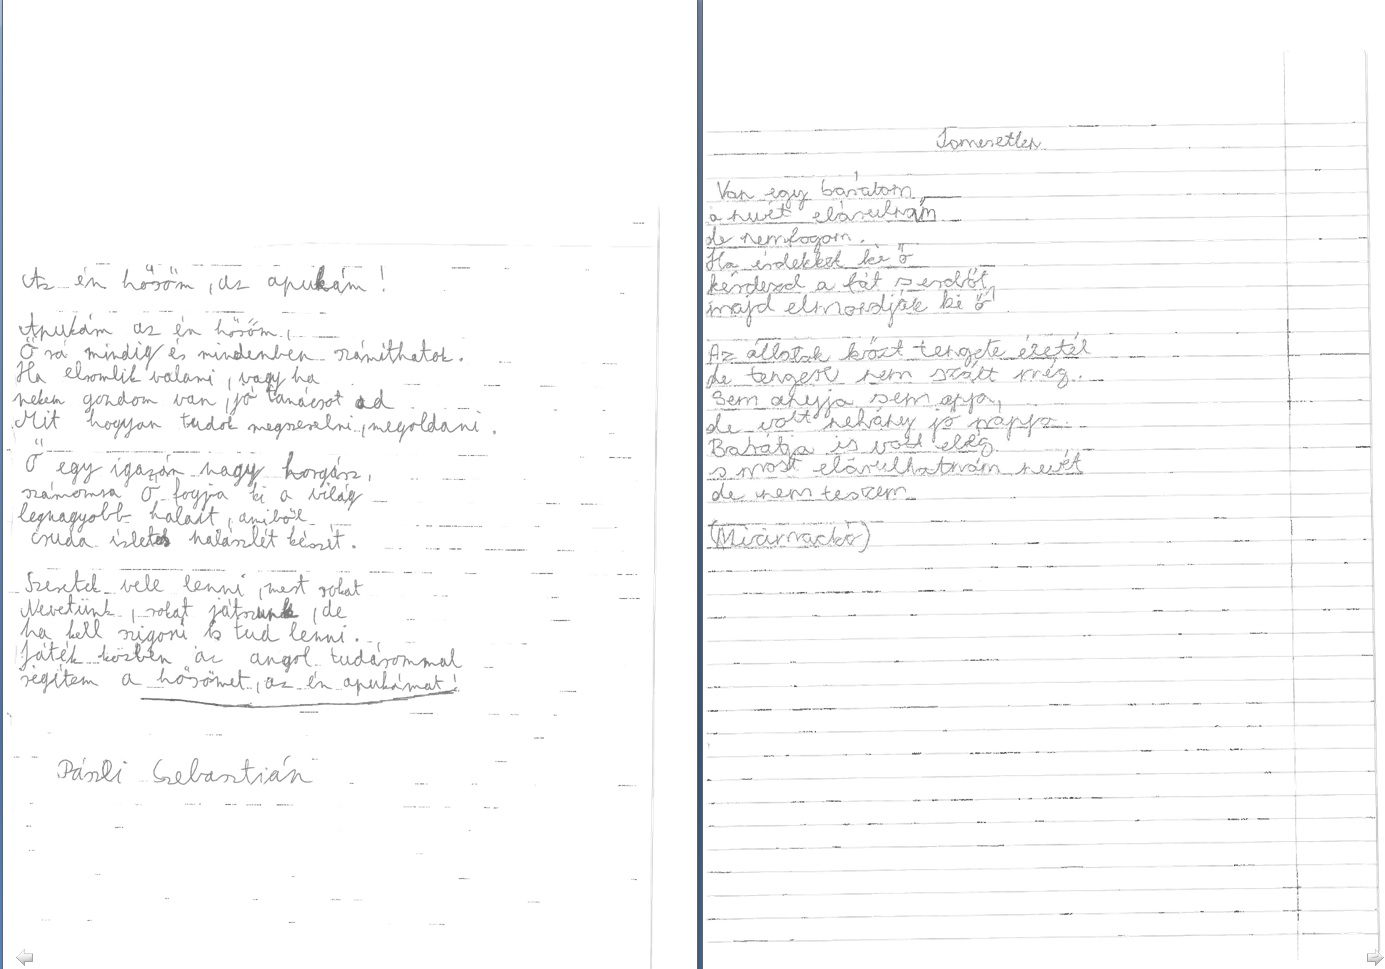 Az én hősöm, az apukám!
Apukám az én hősöm,
Ő rá mindig és mindenben számíthatok.
Ha elromlik valami, vagy ha
nekem gondom van, jó tanácsot ad
Mit hogyan tudok megszerelni, megoldani.
Ő egy igazán nagy horgász,
számomra Ő fogja ki a világ
legnagyobb halait, amiből
csuda ízletes halászlét készít.
Szeretek vele lenni, mert sokat
Nevetünk, sokat játszunk, de
ha kell szigorú is tud lenni.
Játék közben az angol tudásommal
segítem a hősömet, az én apukámat!
Pászli Szebasztián
Ismeretlen
Van egy barátom,
a nevét elárulnám
de nem fogom.
Ha érdekket ki ő
kérdezd a fát s erdőt,
majd elmondják ki ő
Az állatok közt tengete életét
de tengert nem szállt még.
Sem anyja sem apja,
de volt néhány jó napja.
Barátja is volt elég
s most elárulhatnám nevét
de nem teszem
(Micimackó)